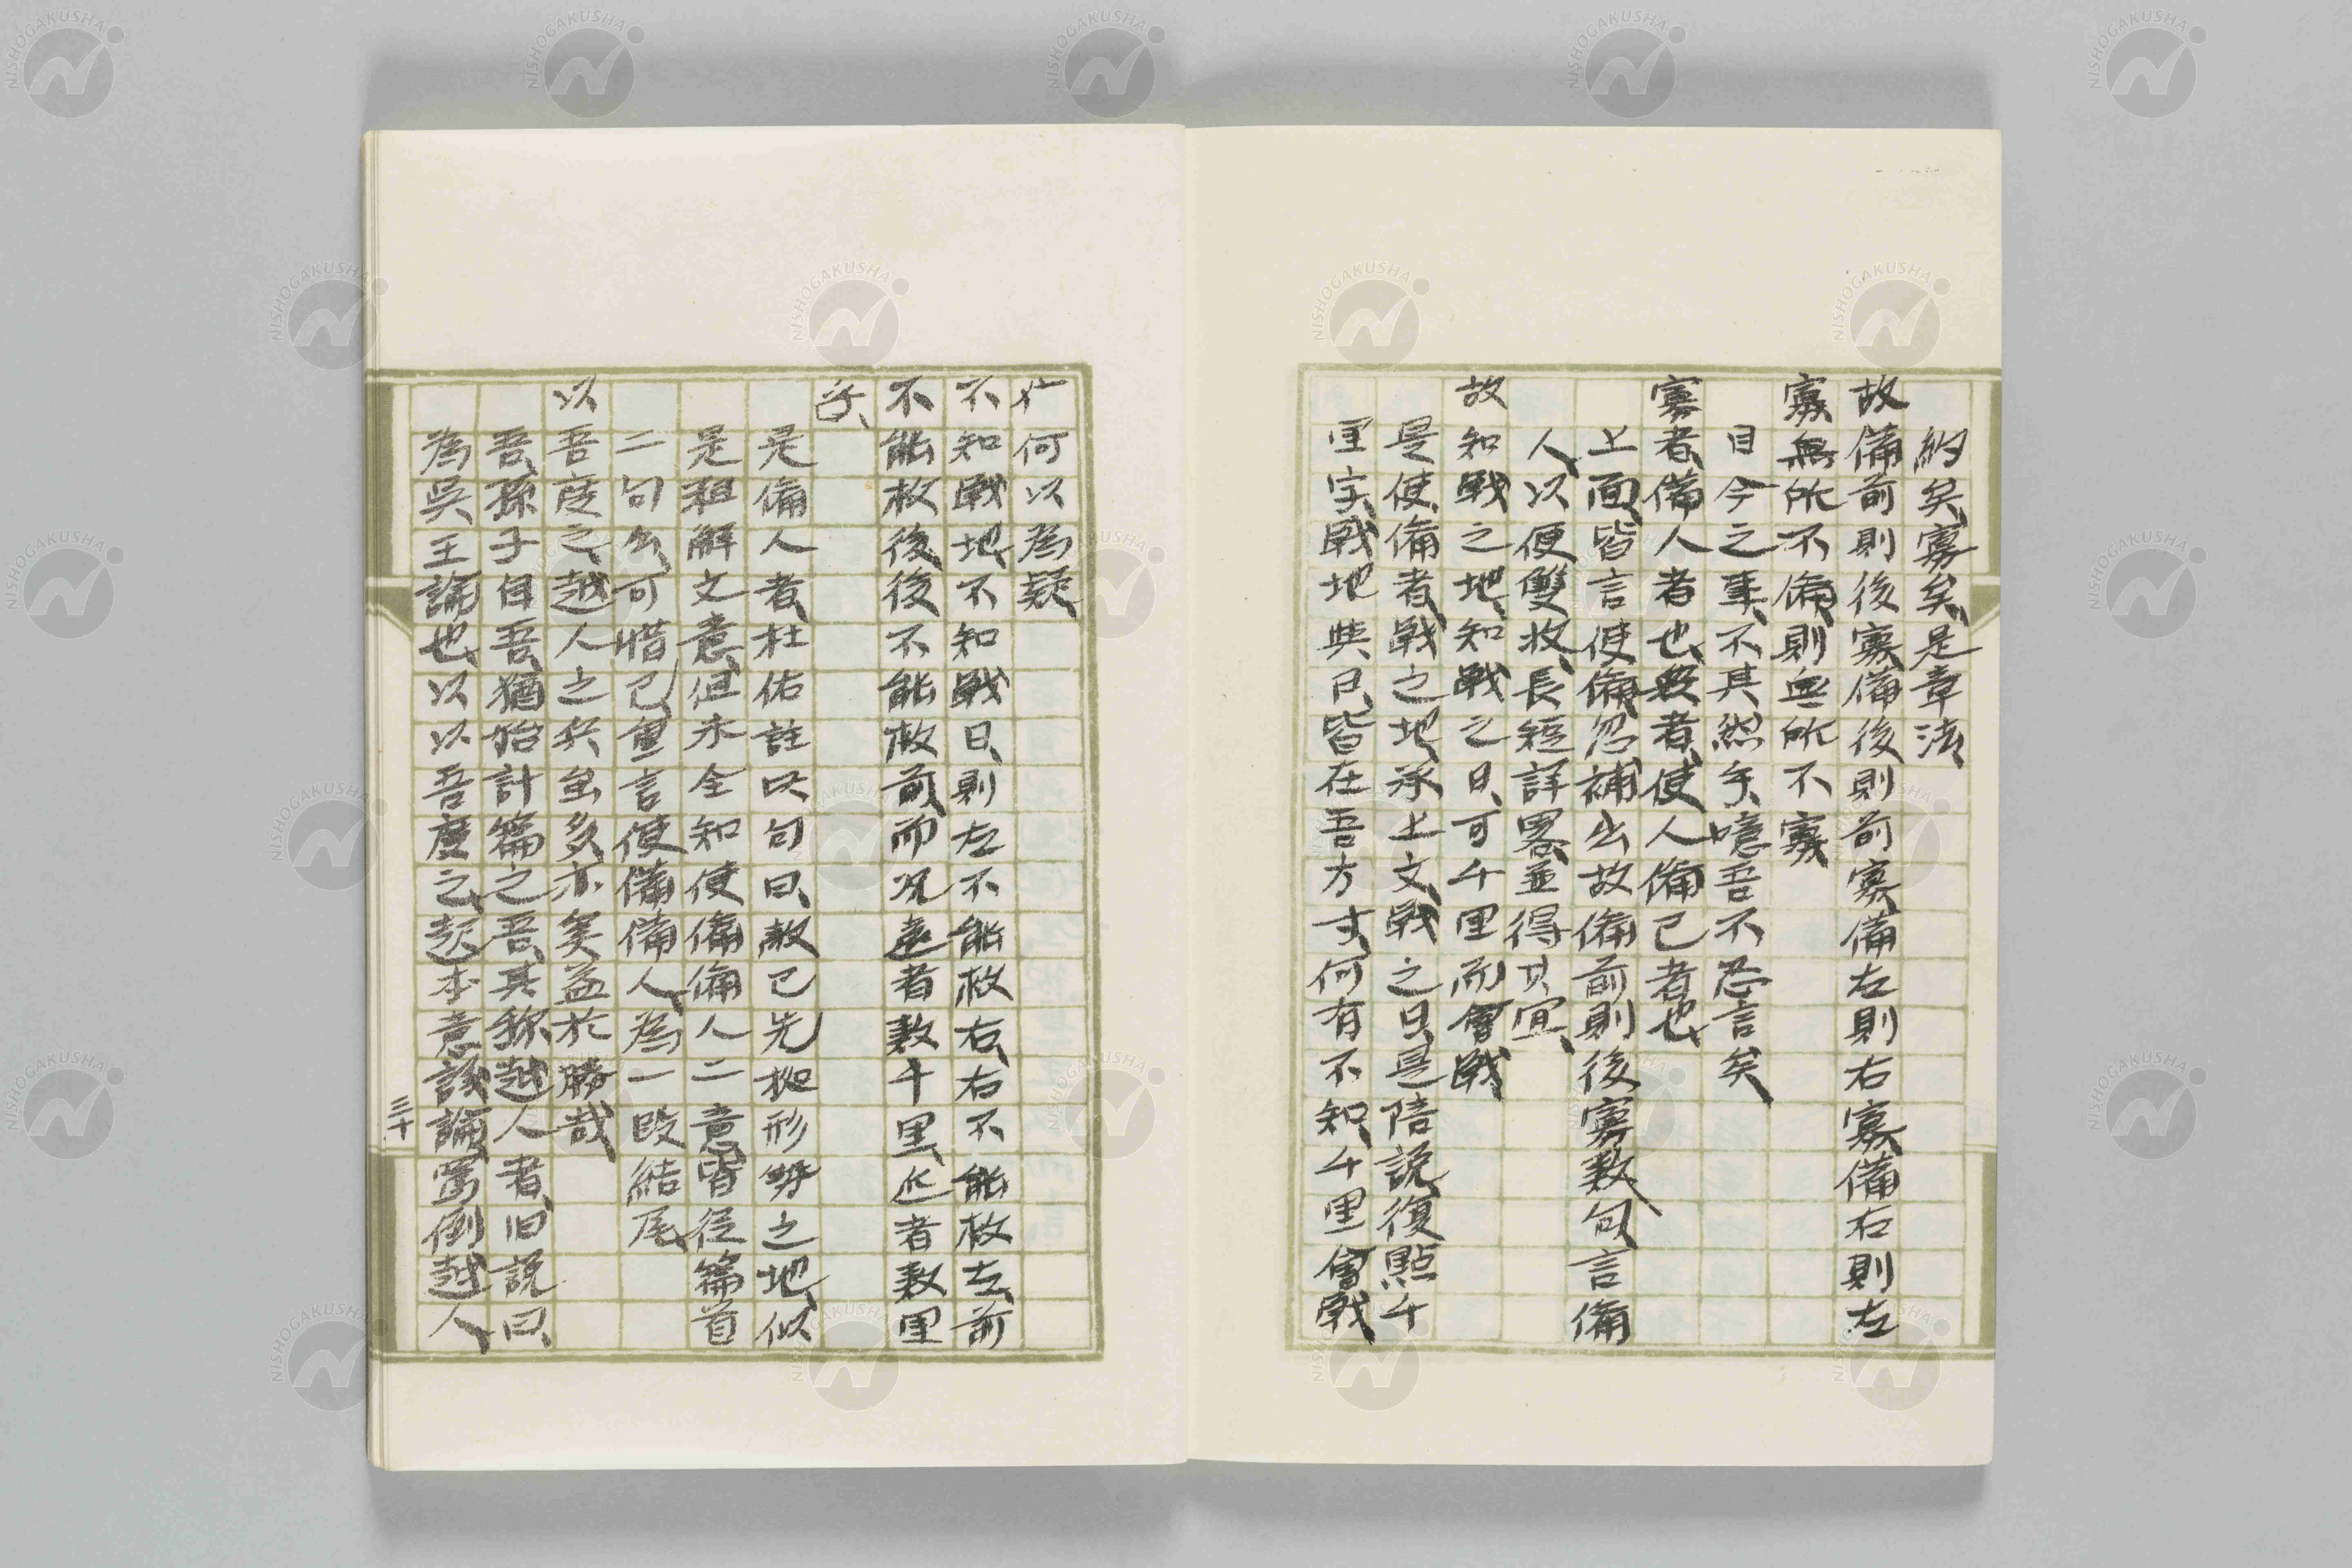 約矣、寡矣、是章法、
故備前則後寡備後則前寡備左則右寡備右則左
寡無所不備、則無所不寡
目今之事、不其然乎、噫吾不忍言矣
寡者、備人者也、衆者、使人備己者也
上面、皆言使備、忽補出故備前則後寡数句、言備
人、以便雙收、長短詳畧並得其宜、
故知戰之地、知戰之日、可千里而會戰
是使備者、戰之地、承上文、戰之日、是陪説、復點千
里字、戰地與日、皆在吾方寸、何有不知、千里會戰
何以為疑、
不知戰地、不知戰日、則左不能救右、右不能救左、前
不能救後、後不能救前、而况遠者数十里、近者数里
乎、
是備人者、杜佑註此句曰、敵已先拠形勢之地、似
是粗解文意、但未全知使備備人二意、皆従篇首
二句出、可惜已、重言使備備人、為一段結尾、
以吾度之、越人之兵虽多、亦奚益於勝哉、
吾、孫子自吾、猶始計篇之吾、其称越人者、旧説曰、
為呉王論也、以以吾度之、起本意議論、罵倒越人、
三十
NISHOGAKUSHA